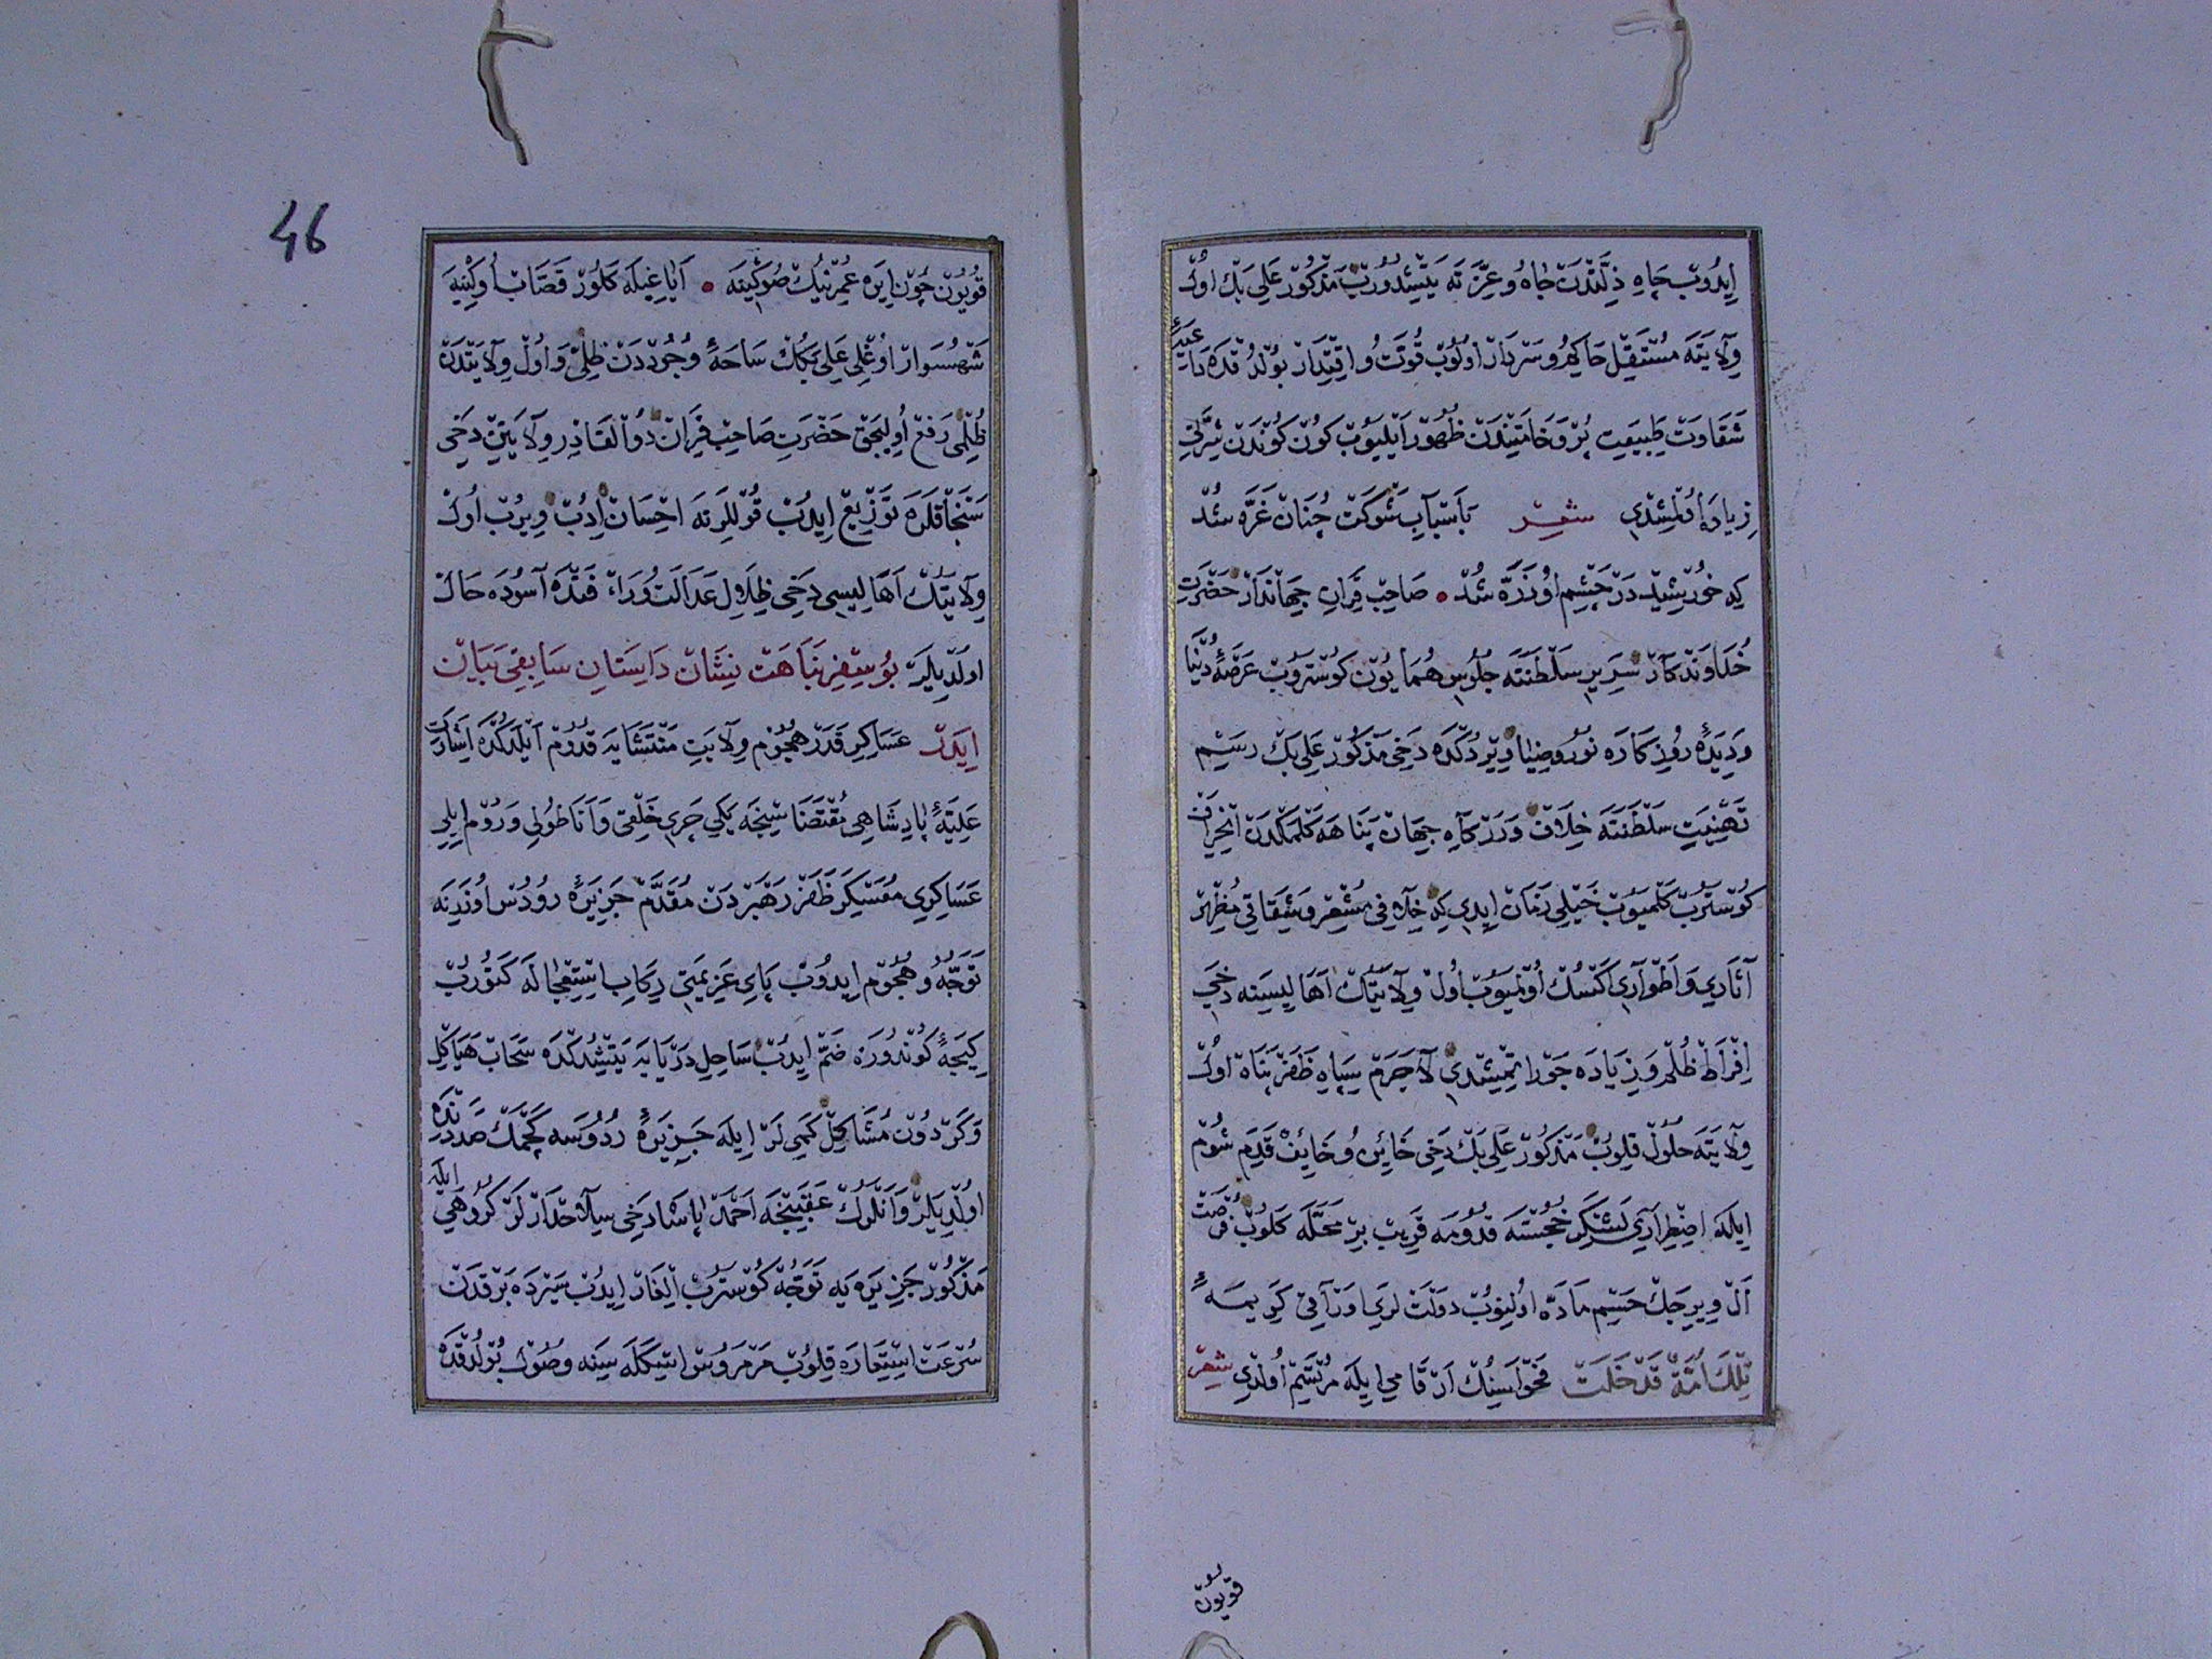 ايدوب چاه ذلتدن جاه و عزته يتشدورب مذكور علي بك اول
ولايته مستقل حاكم و سردار اولوب قوت و اقتدار بولدقده داعيهٔ
شقاوت طبيعت پر وخامتيندن ظهور ايليوب كون كوندن شرتي
زياده اولمشدي شعر باسباب شوكت چنان غره شد
كه خورشيد در چشم او ذره شد • صاحب قران جهاندار حضرت
خداوندكار سرير سلطنته جلوس همايون كوستروب عرصهٔ دنيا
و ديدهٔ روزكاره نور و ضيا ويردكده دخي مذكور علي بك رسم
تهنيت سلطنته خلاف و دركاه جهان پناهه كلمكدن انحراف
كوسترب كلميوب خيلي زمان ايدي كه خلافي مشعر و شقاقي مظهر
آثاري و اطواري اكسك اولميوب اول ولايتك اهاليسينه دخي
افراط ظلم و زياده جور ايتمشدي لاجرم سپاه ظفرپناه اول
ولايته حلول قلوب مذكور علي بك دخي خائن و خائف قدم شوم
ايله اضطراري لشكر خجسته قدومه قريب بر محله كلوب فرصت
ال ويريجك حسم ماده اولنوب دولت لري اوراقي كريمهٔ
تلك امة قد خلت فحواسينك ارقامي ايله مرتسم اولدي شعر
قويون
46
قويون چون ايره عمرينك صوكينه • اياغيله كلور قصاب اوكينه
شهسوار اوغلي علي بكك ساحهٔ وجوددن ظلي و اول ولايتدن
ظلمي رفع اوليجق حضرت صاحب قران ذوالقادر ولايتين دخي
سنجاقلره توزيع ايدب قوللرينه احسان ادب ويرب اول
ولايتك اهاليسي دخي ظلال عدالت وراء فنده آسوده حال
اولديلر بو سفر نباهت نشان داستان سابقي بيان
ايدر عساكر قدر هجوم ولايت منتشايه قدوم ايلدكده اشارت
عليهٔ پادشاهي مقتضاسنجه يكي چري خلقي و اناطولي و روم ايلي
عساكري معسكر ظفر رهبردن مقدم جزيرهٔ رودس اوزرينه
توجه و هجوم ايدوب پاي عزيمتي ركاب استعجاله كتورب
كيجهٔ كوندوزه ضم ايدب ساحل دريايه يتشدكده سحاب هياكل
و كردون مشاكل كمي لر ايله جزيرهٔ ردوسه كچمك صددنده
اولديلر و انلرك عقبنجه احمد پاشا دخي سلاحدارلر كروهي ايله
مذكور جزيره يه توجه كوسترب ايلغار ايدب سيرده برقدن
سرعت استعاره قلوب مرمروس اسكله سينه وصول بولدقده